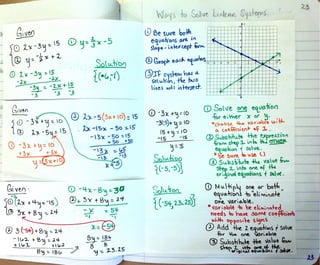 23
Ways to Solve Linear Systems
Given
① 2x - 3y = 15
② y = -½x + 2
① 2x - 3y = 15
-2x -2x
-3y = -2x + 15
-3 -3 -3
① y = ⅔x - 5
Solution
{(6,-1)}
① Be sure both
equations are in
slope-intercept form
② Graph each equation
③ If system has a
solution, the two
lines will intersect
Given
① -3x + y = 10
② 2x - 5y = 15
① -3x + y = 10
+3x +3x
y = 3x + 10
② 2x - 5(3x + 10) = 15
2x - 15x - 50 = 15
-13x - 50 = 15
+50 +50
-13x = 65
-13 -13
x = -5
① -3x + y = 10
-3(-5) + y = 10
15 + y = 10
-15 -15
y = -5
Solution
{(-5,-5)}
① Solve one equation
for either x or y.
*choose the variable with
a coefficient of 1
② Substitute the expression
from step 1 into the other
equation & solve.
*Be sure to use ( )
③ Substitute the value from
step 2 into one of the
original equations & solve.
Given:
① 2x + 4y = -15
② 3x + 8y = 24
② 3(-54) + 8y = 24
-162 + 8y = 24
+162 +162
8y = 186
① -4x - 8y = 30
② 3x + 8y = 24
-x = 54
x = -54
8y = 186
8 8
y = 23.25
Solution
{(-54, 23.25)}
① Multiply one or both
equations to eliminate
one variable.
*variable to be eliminated
needs to have same coefficients
with opposite signs
② Add the 2 equations & solve
for the one variable
③ Substitute the value from
step 2 into one of the
original equations & solve.
23